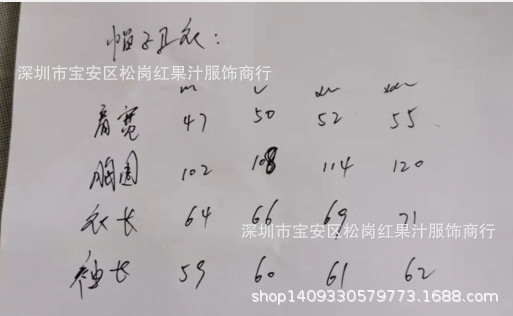 帽子卫衣：
深圳市宝安区松岗红果汁服饰商行
M L XL XXL
肩宽 47 50 52 55
胸围 102 108 114 120
衣长 64 66 69 71
深圳市宝安区松岗红果汁服饰商行
袖长 59 60 61 62
shop1409330579773.1688.com